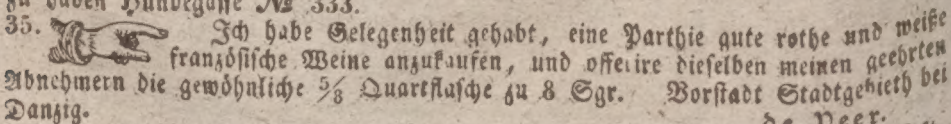 zu haben Hundegasse No 333.
35. Ich habe Gelegenheit gehabt, eine Parthie gute rothe und weiße
französische Weine anzukaufen, und offerire dieselben meinen geehrten
Abnehmern die gewöhnliche 5/8 Quartflasche zu 8 Sgr. Vorstadt Stadtgebieth bei
Danzig.
de Veer.